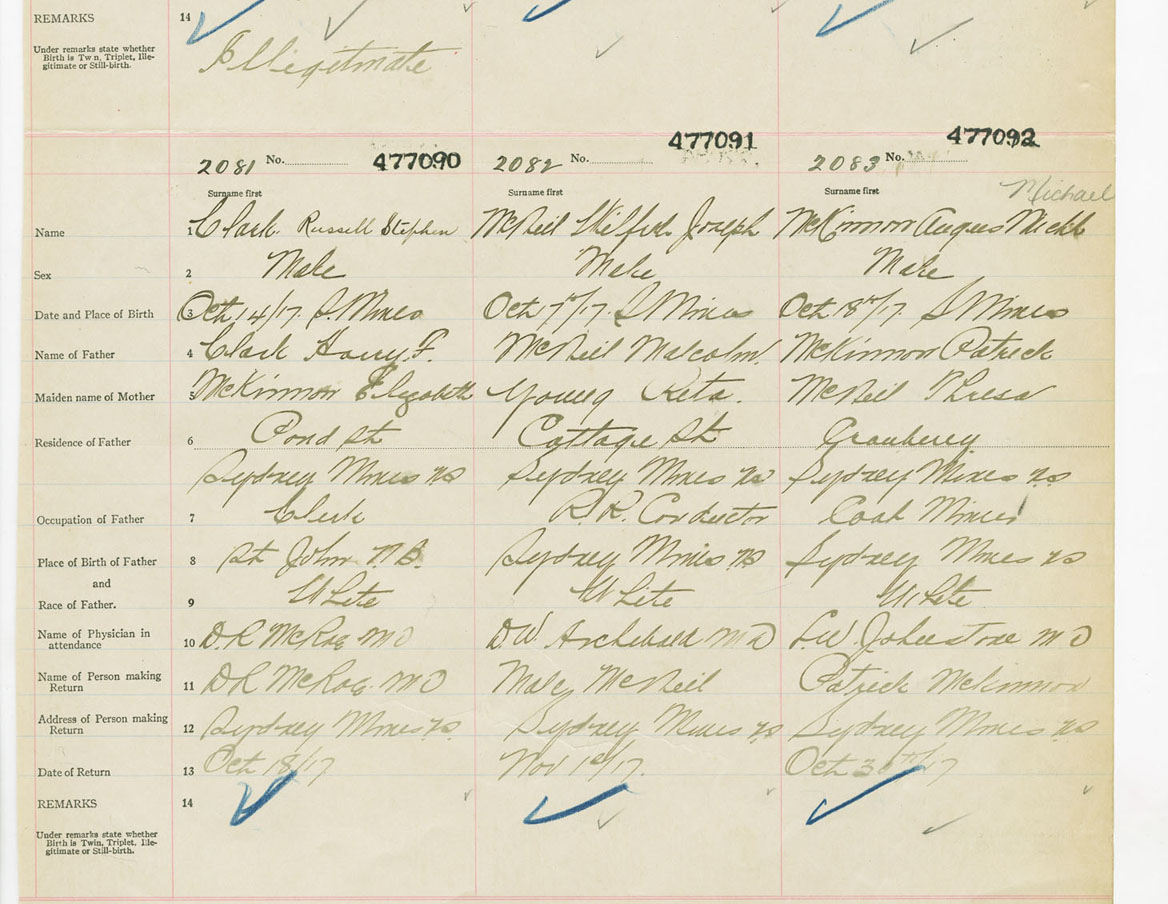 REMARKS 14
Under remarks state whether
Birth is Twin, Triplet, Ille-
gitimate or Still-birth.
Illegitmate
2081 No. 477090 2082 No. 477091 2083 No. 477092
Surname first Surname first Surname first
Michael
Name 1 Clark Russell Stephen McNeil Wilfred Joseph McKinnon Angus Michl
Sex 2 Male Male Male
Date and Place of Birth 3 Oct 14/17. S. Mines Oct 7th/17. S Mines Oct 18th/17. S Mines
Name of Father 4 Clark Harry F. McNeil Malcolm. McKinnon Patrick
Maiden name of Mother 5 McKinnon Elizabeth Young Reta. McNeil Thresa
Residence of Father 6 Pond St Cottage St Cranberry
Sydney Mines NS Sydney Mines NS Sydney Mines NS
Occupation of Father 7 Clerk R.R. Conductor Coal Miner
Place of Birth of Father 8 St John N.B. Sydney Mines NS Sydney Mines NS
and
Race of Father. 9 White White White
Name of Physician in
attendance 10 D.R McRae MD D.W Archibald MD L.W. Johnstone MD
Name of Person making
Return 11 DR McRae MD McNeil Patrick McKinnon
Address of Person making
Return 12 Sydney Mines NS. Sydney Mines NS Sydney Mines NS
Date of Return 13 Oct 18/17 Nov 1st/17. Oct 30th/17
REMARKS 14
Under remarks state whether
Birth is Twin, Triplet, Ille-
gitimate or Still-birth.